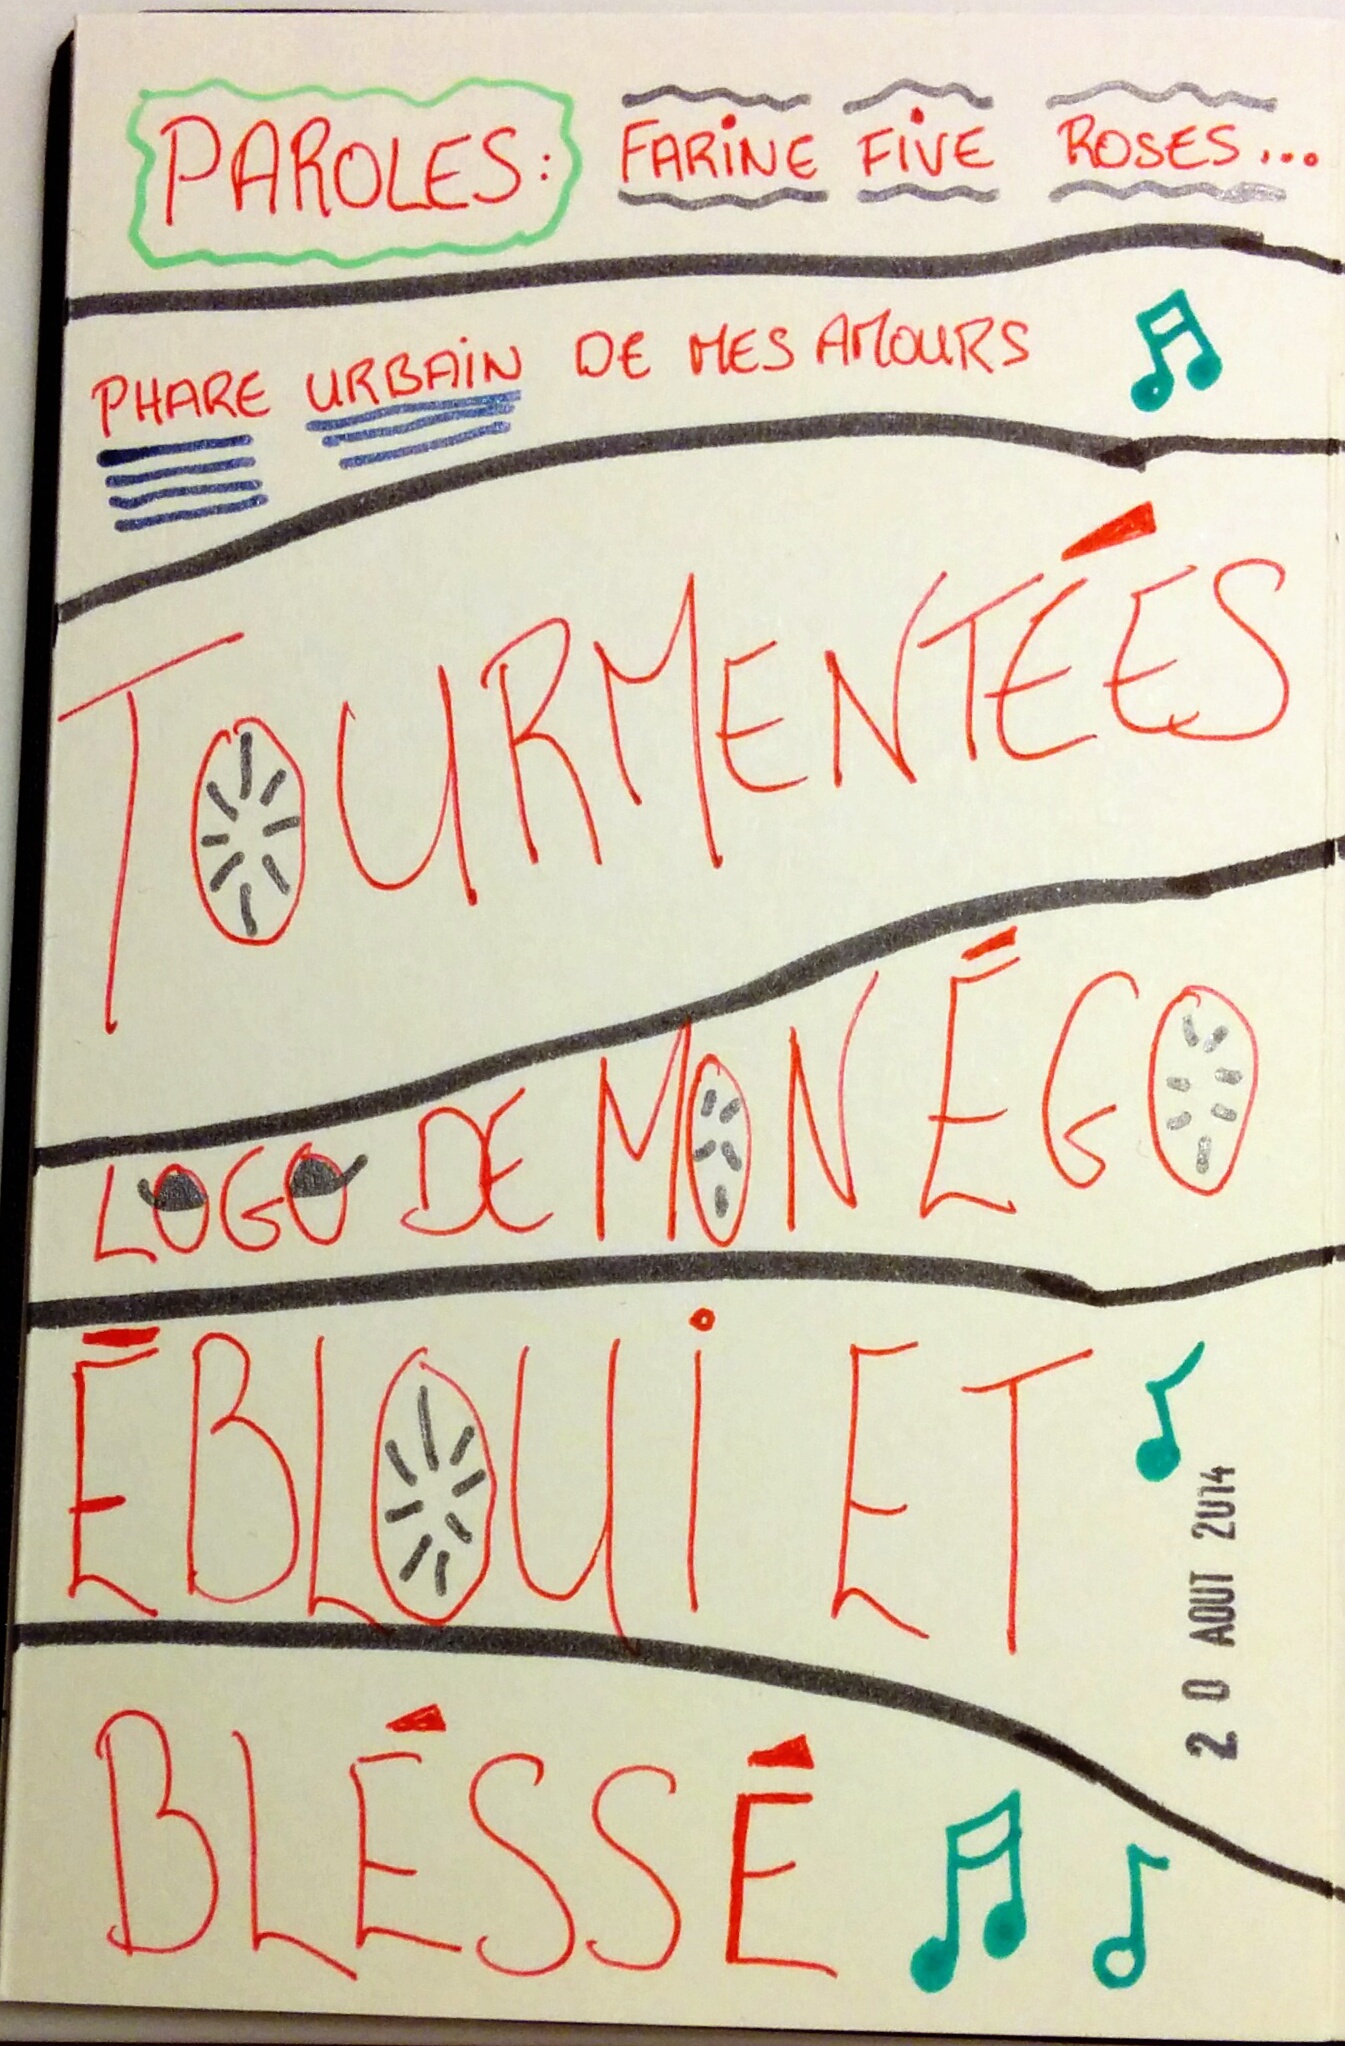 PAROLES: FARINE FIVE ROSES...
PHARE URBAIN DE MES AMOURS
TOURMENTÉES
LOGO DE MON ÉGO
ÉBLOUI ET
20 AOUT 2014
BLÉSSÉ